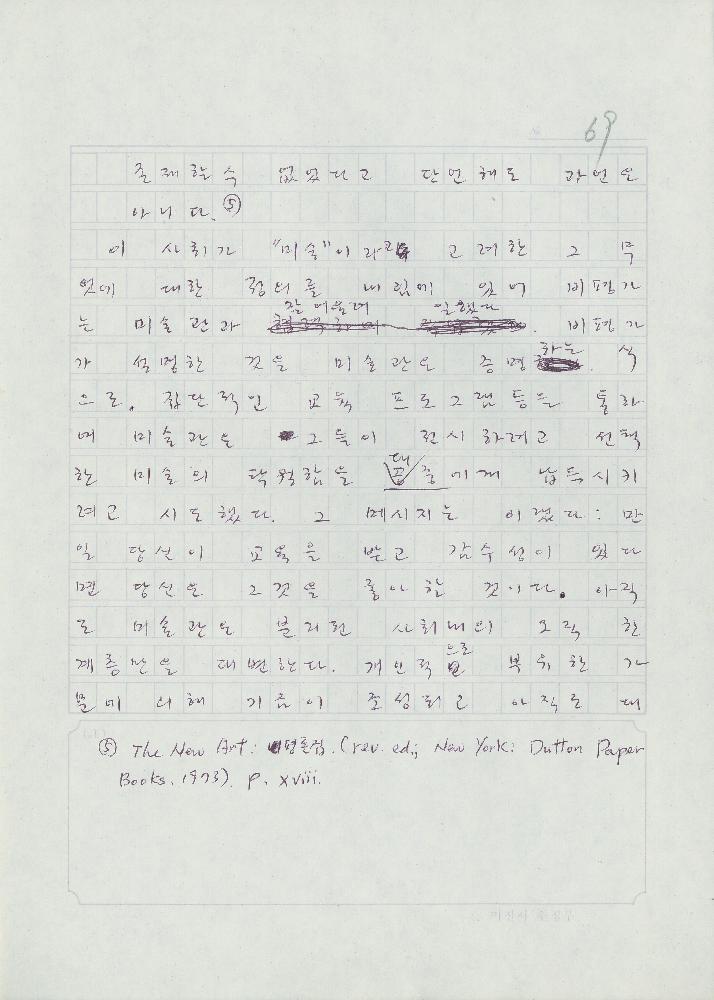 69
존재할 수 없었다고 단언해도 과언은
아니다. ⑤
이 사회가 "미술"이라고 고려한 그 무
엇에 대한 정의를 내림에 있어 비평가
잘 어울려 일했다
는 미술관과 . 비평가
하는
가 설명한 것을 미술관은 증명 . 식
으로. 집단적인 교육 프로그램 등을 통하
여 미술관은 그들이 전시하려고 선택
대
한 미술의 탁월함을 중에게 납득시키
려고 시도했다. 그 메시지는 이랬다: 만
일 당신이 교육을 받고 감수성이 있다
면 당신은 그것을 좋아할 것이다. 아직
도 미술관은 분리된 사회내의 오직 한
으로
계층만을 대변한다. 개인적 부유한 가
문에 의해 기금이 조성되고 아직도 대
⑤ The New Art: 평론집. (rev. ed; New York: Dutton Paper
Books, 1973). p. xviii.